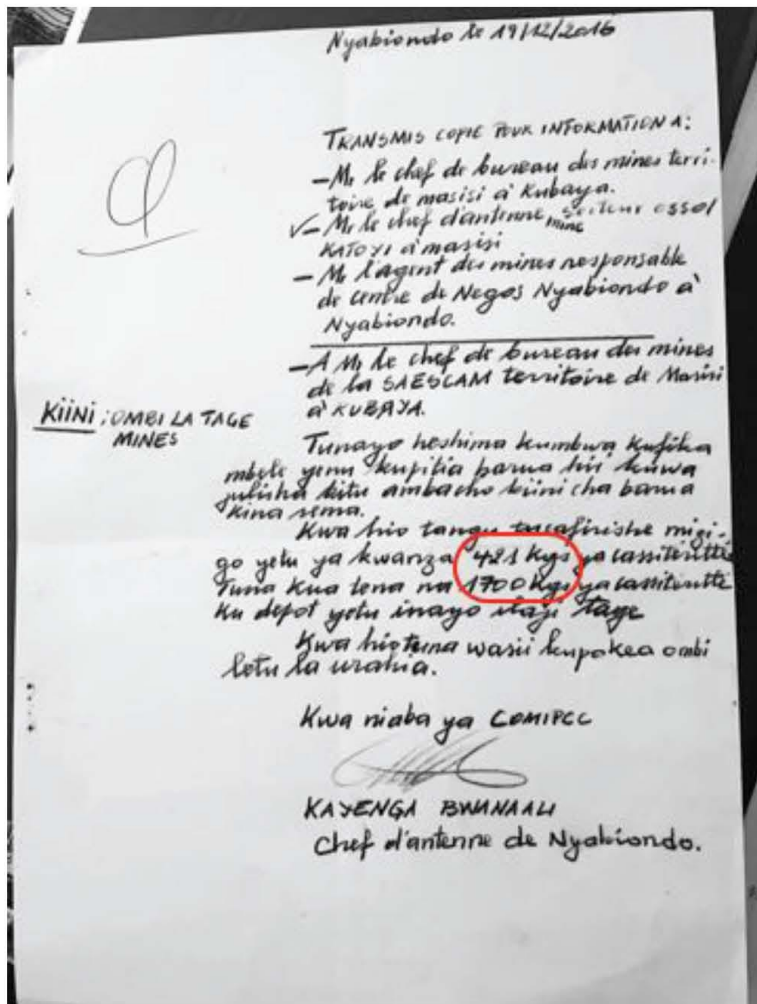 Nyabiondo le 19/12/2016
TRANSMIS COPIE POUR INFORMATION A:
- Mr le chef de bureau des mines terri-
toire de masisi à Kubaya.
- Mr le chef d'antenne mine secteur osso/
KATOYI à masisi
- Mr l'agent des mines responsable
de centre de Negos Nyabiondo à
Nyabiondo.
- A Mr le chef de bureau des mines
de la SAESCAM territoire de Masisi
à KUBAYA.
KIINI : OMBI LA TAGE
MINES
Tunayo heshima kumbwa kufika
mbele yenu kupitia barua hii kuwa
julisha kitu ambacho kiini cha barua
kina sema.
Kwa hio tangu tusafirishe mizi-
go yetu ya kwanza 421 kgs ya cassiteritte
Tuna kua tena na 1700 kgs ya cassiteritte
Ku depot yetu inayo itaji tage
Kwa hio tuna wasii kupokea ombi
letu la urahia.
Kwa niaba ya COMIPCC
KAYENGA BWANAALI
Chef d'antenne de Nyabiondo.